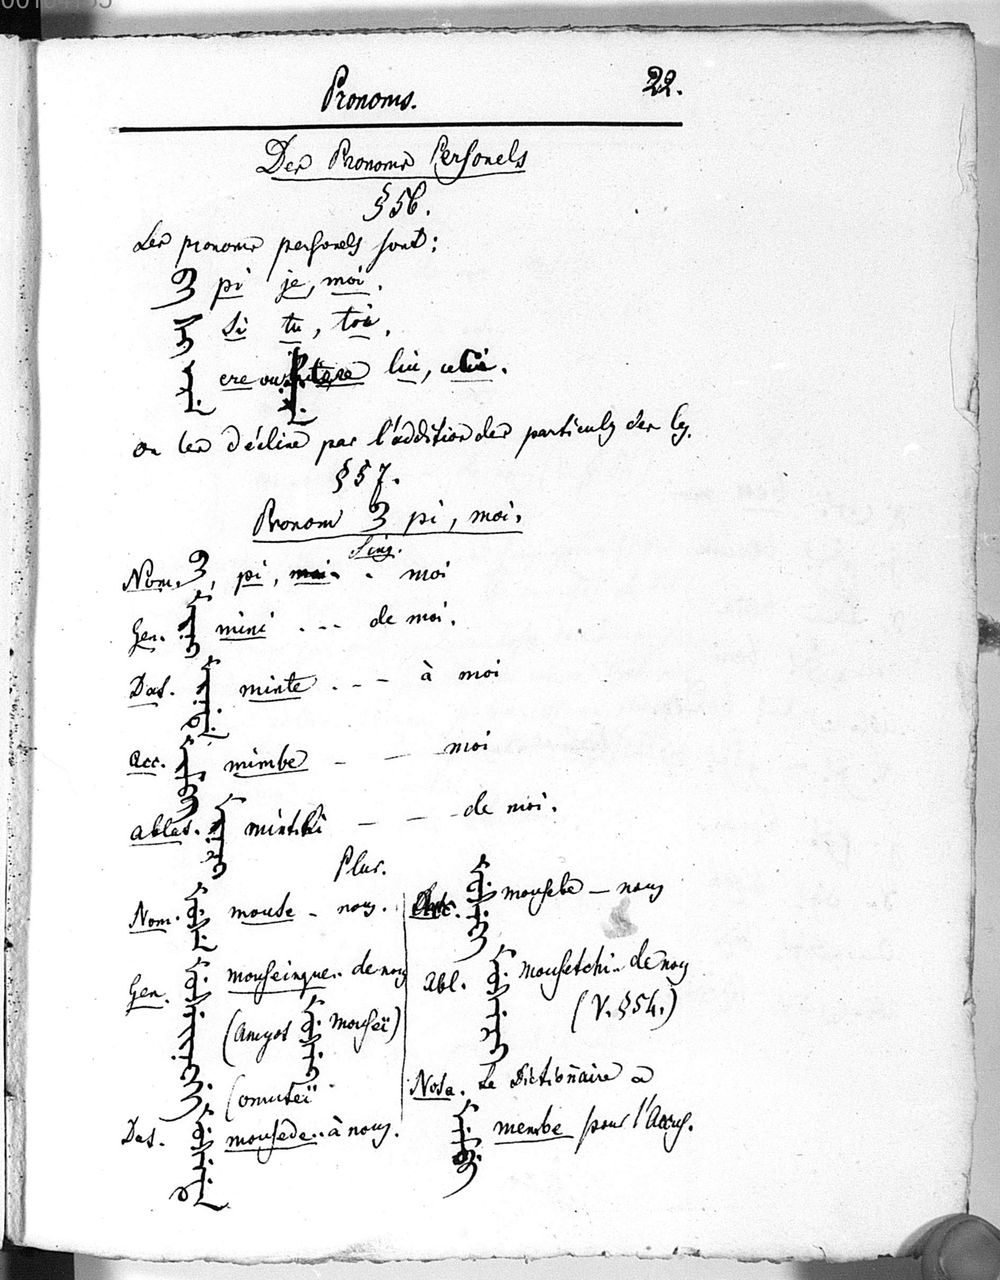 Pronoms. 22.
Des Pronoms Personels
§ 56.
Les pronoms personels sont:
ᠪᡳ pi je, moi.
ᠰᡳ si tu, toi.
ere ou tere lui, celui.
on les décline par l'addition des particules des
§ 57.
Pronom ᠪᡳ pi, moi.
Sing.
Nom. ᠪᡳ, pi, moi - moi
Gen. ᠮᡳᠨᡳ mini . - - de moi.
Dat. ᠮᡳᠨᡩᡝ minte . - - à moi
acc. ᠮᡳᠮᠪᡝ mimbe - - moi
ablat. mintchi - - - de moi.
Plur.
Nom. ᠮᡠᠰᡝ mouse - nous.
Gen. mouseingue.. de nous
(Amyot ᠮᡠᠰᡝᡳ mouseï)
Dat. ᠮᡠᠰᡝᡩᡝ mousede.. à nous.
Acc. ᠮᡠᠰᡝᠪᡝ mousebe - nous
Abl. mousetchi.. de nous
(V. § 54.)
Nota. Le Dictionnaire a
membe pour l'Accus.